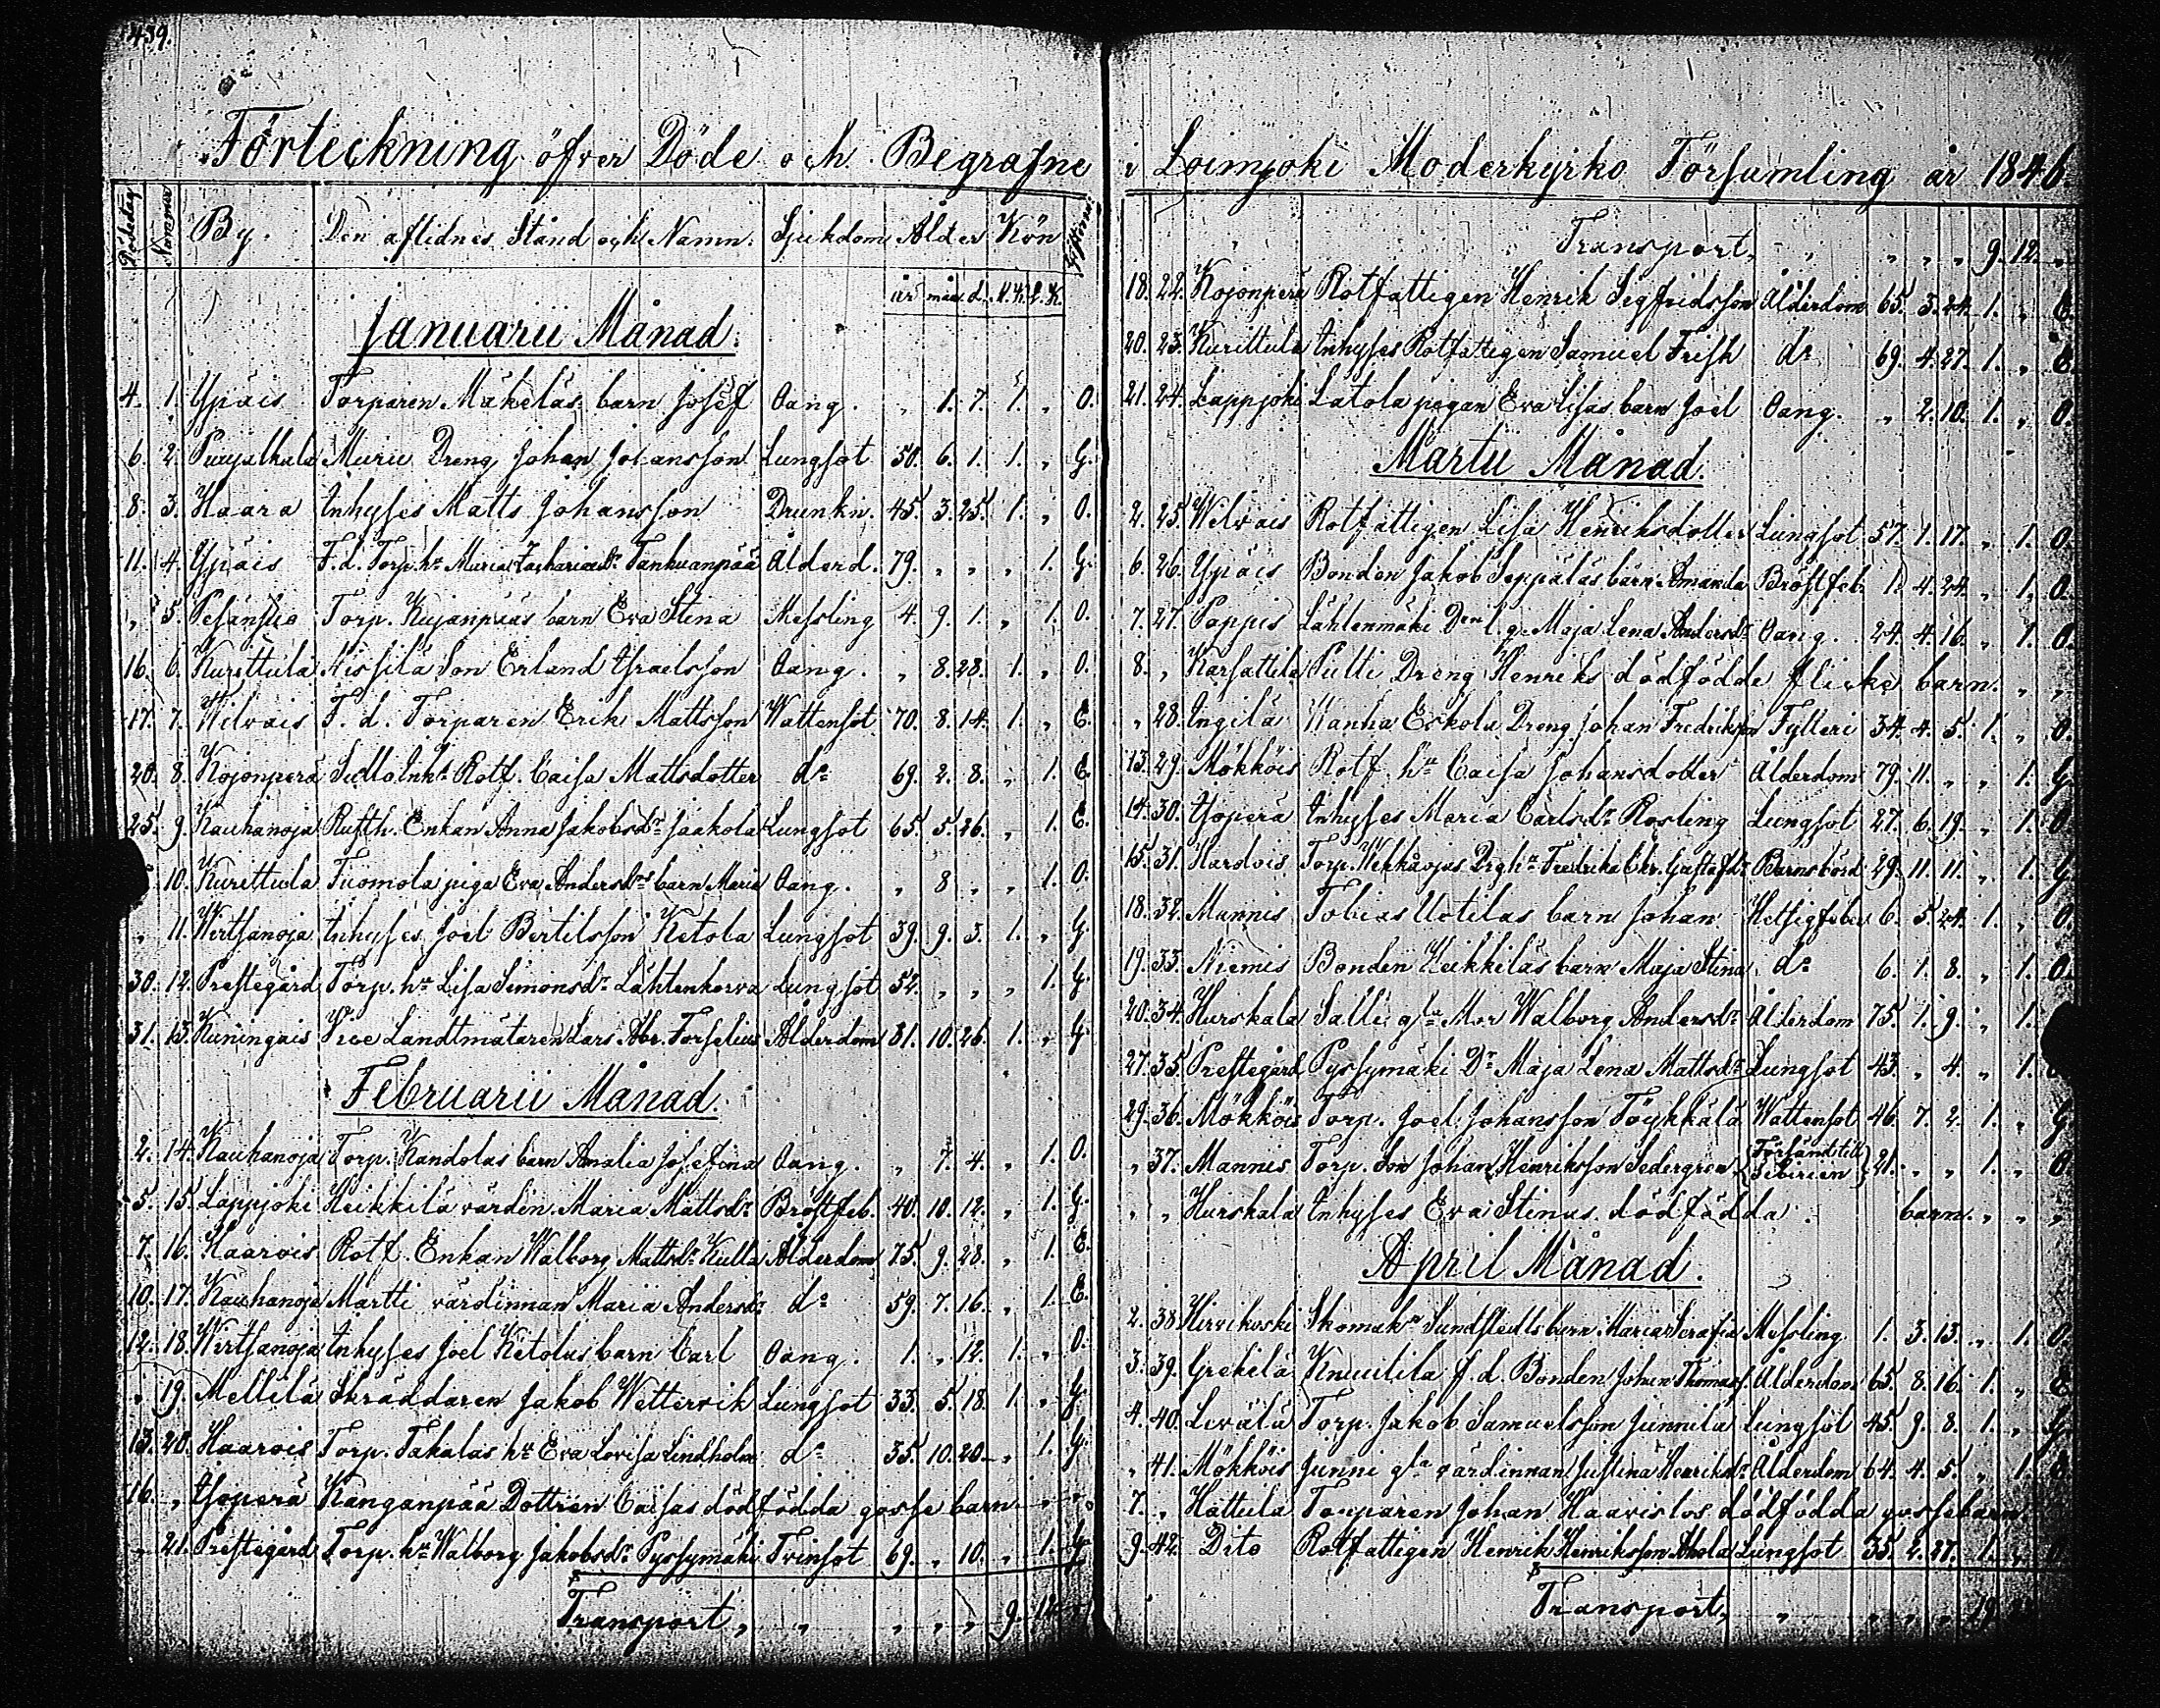 439.
Förteckning öfver Döde och Begrafne
Dödedag Nommer By. Den aflidnes Stånd och Namn. Sjukdom Ålder Kön
år mån. d. M.K. Q.K.
Januarii Månad.
4. 1. Ypäis Torparen Mäkeläs barn Josef Oang. " 1. 7. 1. " O.
6. 2. Murii Dreng Johan Johansson Lungsot 50. 6. 1. 1. " G.
8. 3. Haara Inhyses Matts Johansson Drunkn. 45. 3. 25. 1. " O.
11. 4. Ypäis F.d. Torp. hu Maria Zachariaedr Tanhuanpää Ålderd. 79. " " " 1. G.
" 5. Pesänsuo Torp. Kujanpääs barn Eva Stina Messling 4. 9. 1. " 1. O.
16. 6. Kurittula Hissilä Son Erland Israelsson Oang. " 8. 28. 1. " O.
17. 7. Wilvais F.d. Torparen Erik Mattsson Wattensot 70. 8. 14. 1. " E.
20. 8. Kojonperä Inhs Rotf. Caisa Mattsdotter do 69. 2. 8. " 1. E.
25. 9. Kauhanoja Rusth. Enkan Anna Jakobsdr Jaakola Lungsot 65. 5. 26. " 1. E.
10. Kurittula Tuomola piga Eva Andersdrs barn Maria Oang. " 8. " " 1. O.
" 11. Wirtsanoja Inhyses Joel Bertilsson Ketola Lungsot 39. 9. 3. 1. " G.
30. 12. Prestegård Torp. hu Lisa Simonsdr Lähtenkorva Lungsot 52. " " " 1. G.
31. 13. Kuningais Vice Landtmätaren Lars Abr. Forselius Ålderdom 81. 10. 26. 1. " G.
Februarii Månad.
2. 14. Kauhanoja Torp. Kandolas barn Amalia Josefina Oang. " 7. 4. " 1. O.
5. 15. Lappjoki Heikkilä värdin. Maria Mattsdr Bröstfeb. 40. 10. 12. " 1. G.
7. 16. Haarois Rotf. Enkan Walborg Mattsdr Kulla Ålderdom 75. 9. 28. " 1. E.
10. 17. Kauhanoja Martti värdinnan Maria Andersdr do 59. 7. 16. " 1. E.
12. 18. Wirtsanoja Inhyses Joel Ketolas barn Carl Oang. 1. " 12. 1. " O.
" 19. Mellilä Skräddaren Jakob Wettervik Lungsot 33. 5. 18. 1. " G.
13. 20. Haarois Torp. Takalas hu Eva Lovisa Lindholm do 35. 10. 20. " 1. G.
16. " Isoperä Kanganpää Dottren Caisas dödfödda gosse barn " "
" 21. Prestegård Torp. hu Walborg Jakobsdr Pyssymäki Tvinsot 69. " 10. " 1. G.
Transport, " " " " 9. 12. "
i Loimjoki Moderkyrko Församling år 1846.
Transport, " " " " 9. 12. "
18. 22. Kojonperä Rotfattigen Henrik Segfridsson Ålderdom 65. 3. 24. 1. " E.
20. 23. Kurittula Inhyses Rotfattigen Samuel Frisk do 69. 4. 27. 1. " E.
21. 24. Lappjoki Latola pigan Eva Lisas barn Joel Oang. " 2. 10. 1. " O.
Martii Månad.
2. 25. Wilvais Rotfattigen Lisa Henriksdotter Lungsot 57. 1. 17. " 1. O.
6. 26. Ypäis Bonden Jakob Seppäläs barn Amanda Bröstfeb. 1. 4. 24. " 1. O.
7. 27. Pappis Lähtenmäki Den l.g. Maja Lena Andersdr Oang. 24. 4. 16. " 1. O.
8. " Karsattila Pulli Dreng Henriks dödfödde flicke barn. " "
" 28. Ingilä Wanha Eskola Dreng Johan Fredriksson Fylleri 34. 4. 5. 1. " O.
13. 29. Mökköis Rotf. hu Caisa Johansdotter Ålderdom 79. 11. " " 1. G.
14. 30. Isoperä Inhyses Maria Carlsdr Rosling Lungsot 27. 6. 19. " 1. O.
15. 31. Hardvis Torp. Drghu Fredrika Chr. Gustafdr Barnsbörd 29. 11. 11. " 1. G.
18. 32. Mannis Tobias Uotilas barn Johan Hetsigfeber 6. 5. 24. 1. " O.
19. 33. Niemis Bonden Heikkiläs barn Maja Stina do 6. 1. 8. " 1. O.
20. 34. Hurskala Salli gla Mor Walborg Andersdr Ålderdom 75. 1. 9. " 1.
27. 35. Prestegård Pyssymäki Dr Maja Lena Mattsdr Lungsot 43. " 4. " 1.
29. 36. Mökköis Torp. Joel Johansson Töykkälä Wattensot 46. 7. 2. 1. " G.
" 37. Mannis Torp. Son Johan Henriksson Sedergren {Försänd till Sibirien} 21. " " 1. " O.
" " Hurskala Inhyses Eva Stinas dödfödda barn. " " "
April Månad.
2. 38. Hirvikoski Skomakn Sundstedts barn Maria Serafia Messling 1. 3. 13. " 1. O.
3. 39. Grekilä Knuutila f.d. Bonden Johan Thomass. Ålderdom 65. 8. 16. 1. " E.
4. 40. Levälä Torp. Jakob Samuelsson Junnila Lungsot 45. 9. 8. 1. " G.
" 41. Mökköis Junni gla värdinnan Justina Henriksdr Ålderdom 64. 4. 5. " 1. E.
7. " Hattula Torparen Johan Haavistos dödfödda gossebarn
9. 42. Dito Rotfattigen Henrik Henriksson Ahola Lungsot 35. 2. 27. 1. " O.
Transport, " " " " 19.